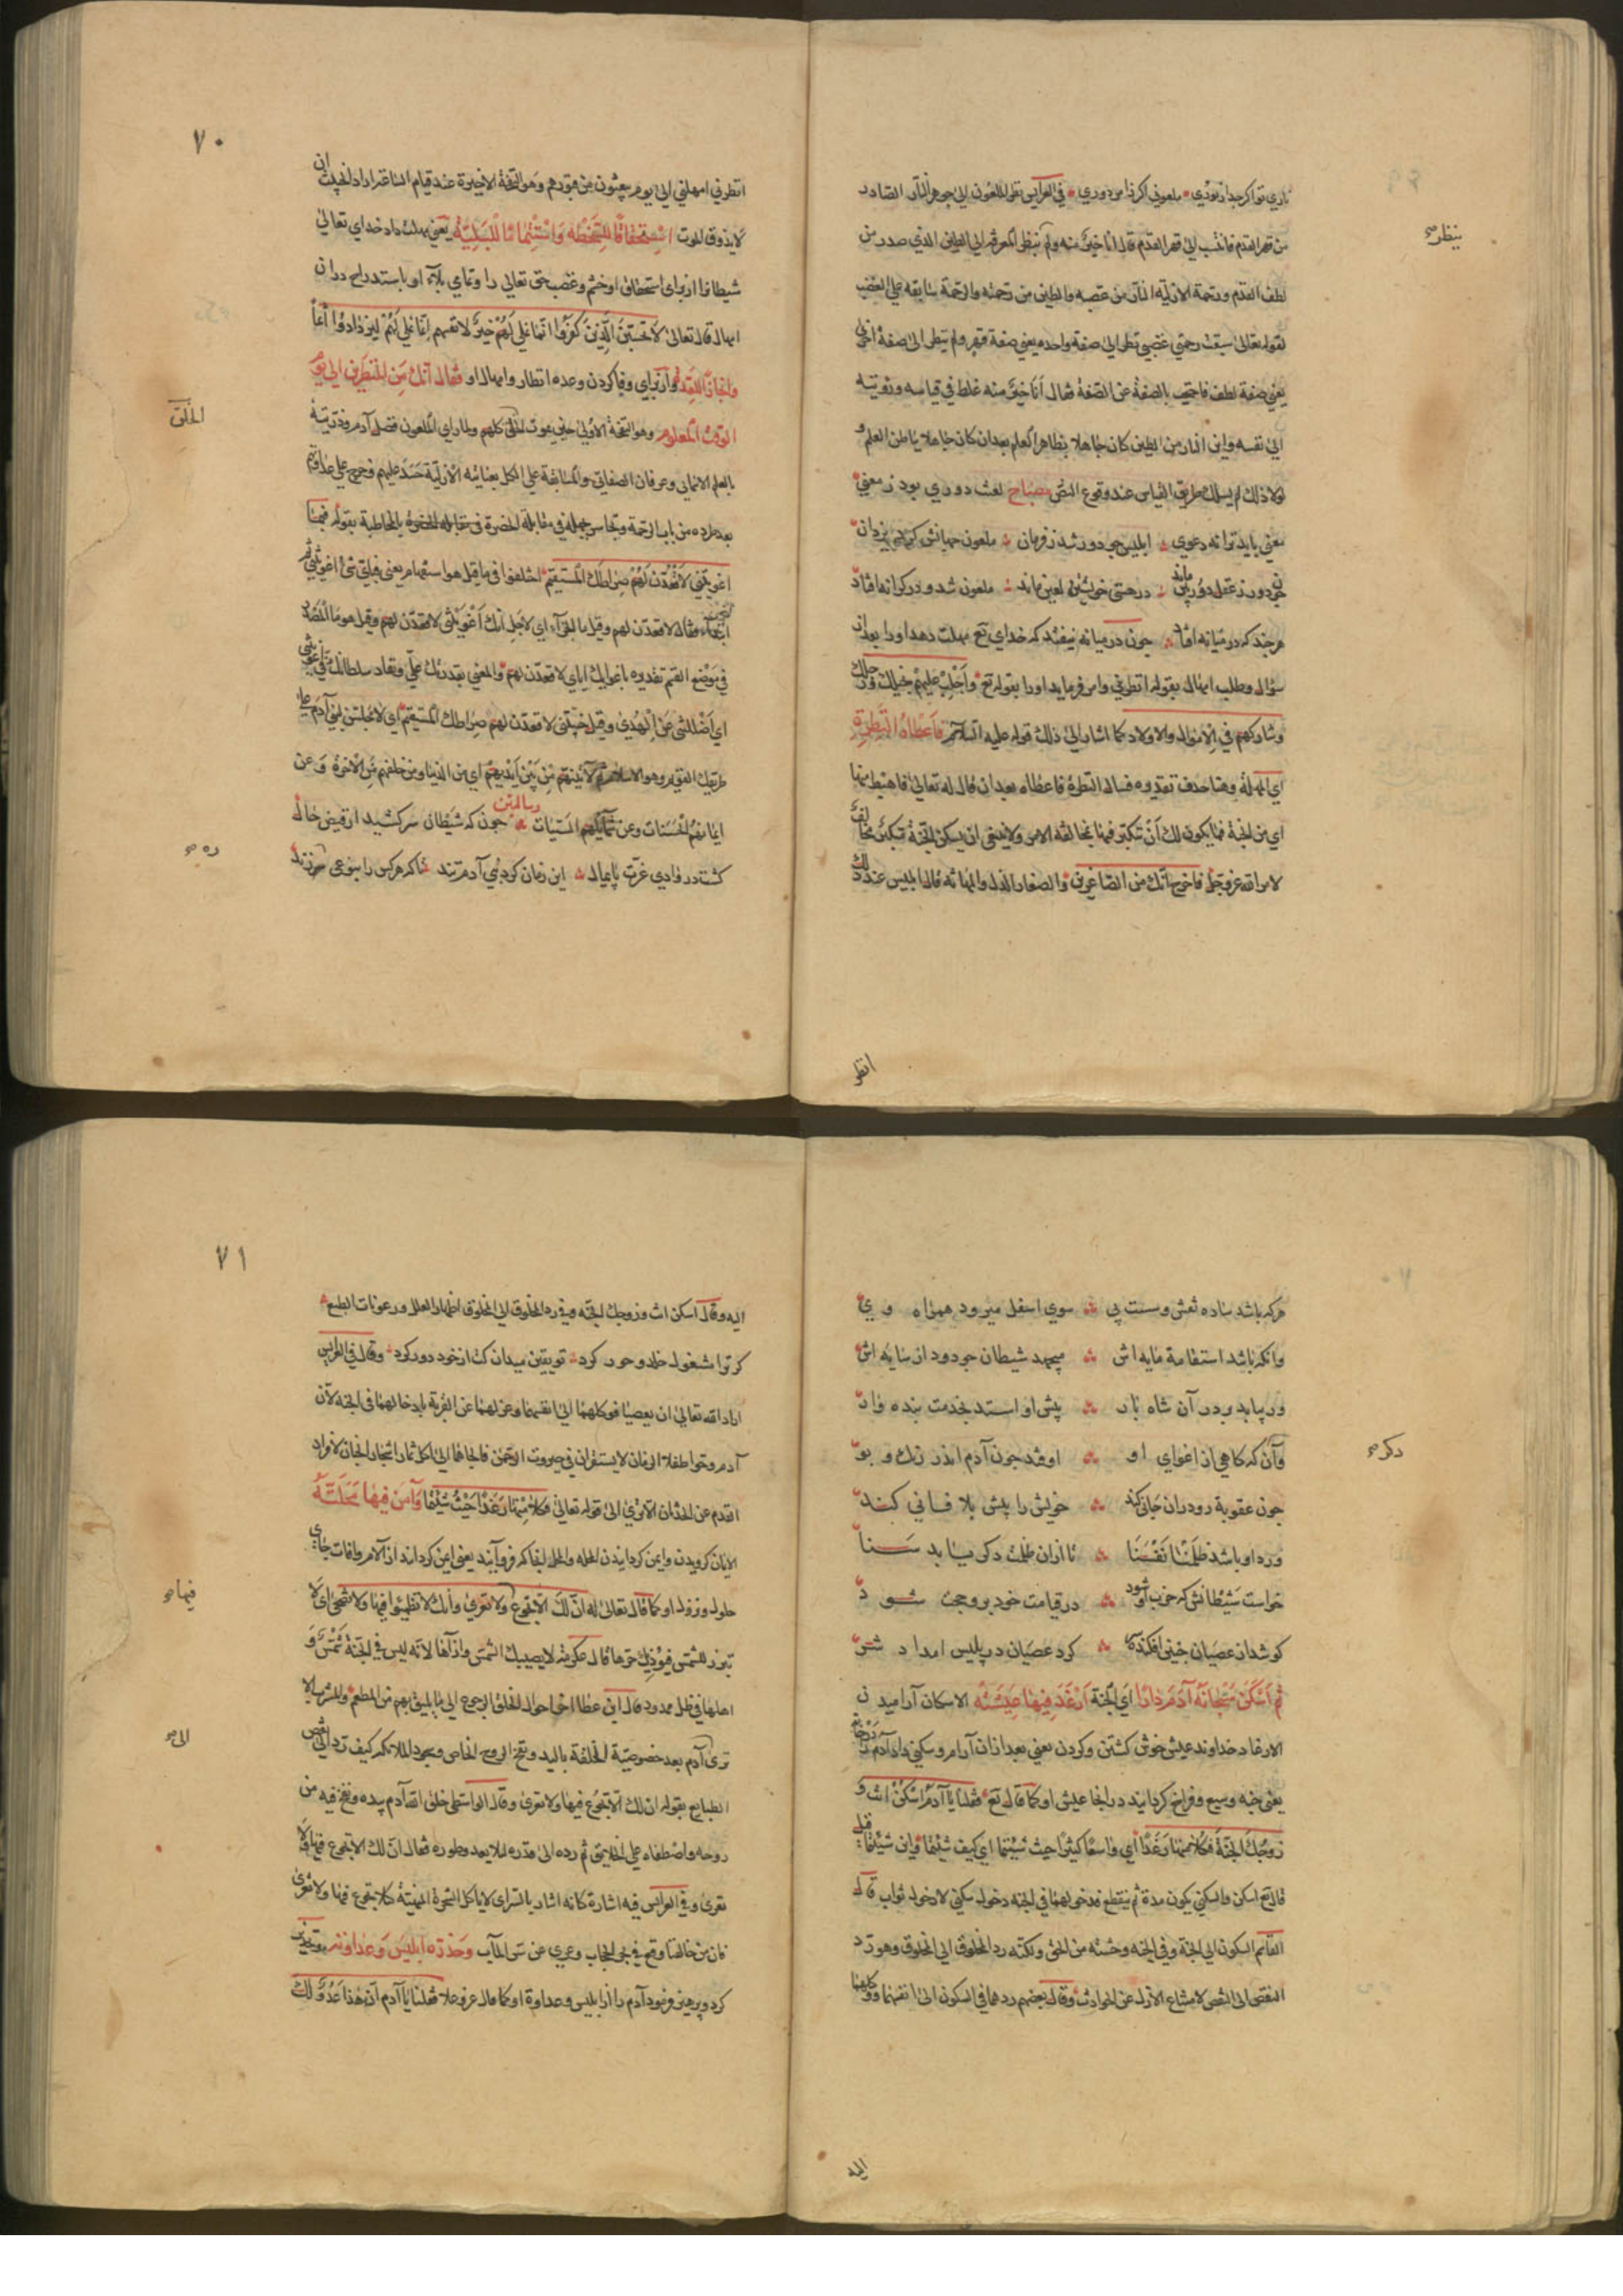 ناري تو اكر جدا ز نوري ملعوني اكر ز امر دوري في العرايس نظر الملعون الى جوهر النار الصادر
من قهر القدم فانتسب الى قهر القدم قال انا خير منه ولم ينظر الملعون الى الطين الذي صدر من
ينظر صح
لطف القدم ورحمة الازلية النار من غضبه والطين من رحمته والرحمة سابقه على الغضب
لقوله تعالى سبقت رحمتي غضبي نظر الى صفة واحده يعني صفة قهر ولم ينظر الى صفة اخرى
يعني صفة لطف فاحتجب بالصفة عن الصفة فقال أنا خير منه غلط في قياسه ورؤيته
الى نفسه واين النار من الطين كان جاهلا بظاهر العلم بعد ان كان جاهلا بباطن العلم و
لولا ذلك لم يسلك طريق القياس عند وقوع النص مصباح لعنت دوري بود ز معني
معني بايد ترا نه دعوي ابليس جو دور شد ز فرمان ملعون جهانش كرد يزدان
جون دور ز عقل دوربين ماند در هستي خويشتن لعين ماند ملعون شد و در كرانه افتاد
هرجند كه در ميانه افتاد جون در ميانه نيفتد كه خداي تع مهلت دهد او را بعد از
سؤال وطلب امهال بقوله انظرني وامر فرمايد او را بقوله تع وأجلب عليهم بخيلك ورجلك
وشاركهم في الاموال والاولاد كما اشار الى ذلك قوله عليه السلام فاعطاه النظرة
اي المهلة وهنا حذف تقديره فسأل النظرة فاعطاه بعد ان قال له تعالى فاهبط منها
اي من الجنة فما يكون لك أن تتكبر فيها بمخالفة الامر ولا ينبغي ان يسكن الجنة متكبر مخالف
لامر الله عز وجل فاخرج انك من الصاغرين والصغار الذل والمهانة قال ابليس عند ذلك
انظر
٧٠
انظرني امهلني الى يوم يبعثون من قبورهم وهو النفخة الاخيرة عند قيام الساعة اراد الخبيث ان
لا يذوق الموت استحقاقا للسخطه واستتماما للبلية يعني مهلت داد خداي تعالى
شيطانرا از براي استحقاق او خشم وغضب حق تعالى را وتماي بلاء او باستدراج در ان
امهال قال تعالى لا تحسبن الذين كفروا انما نملي لهم خير لانفسهم انما نملي لهم ليزدادوا اثما
وانجازا للعدة واز براي وفا كردن وعده انظار وامهال او فقال انك من المنظرين الى يوم
الوقت المعلوم وهو النفخة الاولى حين يموت الخلق كلهم ولما راى الملعون فضل آدم وذريته
الخلق
بالعلم الاسمائي وعرفان الصفاتي والسابقة على الكل بعنايته الازلية حسد عليهم وخرج على عداوتهم
بعد طرده من باب الرحمة وتجاسر بجهله في مقابلة الحضرة بالمخاطبة بقوله فبما
اغويتني لاقعدن لهم صراطك المستقيم اختلفوا في ما قيل هو استفهام يعني فباي شئ اغويتني ثم
ابتداء فقال لاقعدن لهم وقيل ما للجزاء اي لاجل انك اغويتني لاقعدن لهم وقيل هو ما المصدر
في موضع القسم تقديره باغوائك اياي لاقعدن لهم والمعنى بقدرتك علي ونفاد سلطانك في اغويتني
اي اضللتني عن الهدى وقيل خيبتني لاقعدن لهم صراطك المستقيم اي لاجلسن لبني آدم على
طريقك القويم وهو الاسلام ثم لآتينهم من بين ايديهم اي من الدنيا ومن خلفهم من الاخرة وعن
ايمانهم الحسنات وعن شمائلهم السيئات جون كه شيطان سر كشيد از قبض خاك
كشت در وادي عزت پايمال اين زمان كرد بني آدم تند تا كه هر كس را بنوعي ره زند
ره صح
هركه باشد ساده نقش وسست پي سوي اسفل ميرود همراه وي
وانكه باشد استقامة مايه اش ميجهد شيطان جو دود از سايه اش
ور بيابد بر در آن شاه بار پيش او استد بخدمت بنده وار
وآن كه كاهي از اغواي او اوفتد جون آدم اندر رنك و بو
دكر صح
جون عقوبة رو در ان جاني كند خويش را پيش بلا فاني كند
ورد او باشد ظلمنا نفسنا تا از ان ظلمت دكر يابد سنا
خواست شيطانش كه خرب او شود در قيامت خود برو حجت شود
كو شد از عصيان جنين افكنده كرد عصيان در پليس امداد شتر
ثم اسكن سبحانه آدم دارا اي الجنة ارغد فيها عيشته الاسكان آراميدن
الارغاد خداوند عيش خوش كشتن وكردن يعني بعد از ان آرام وسكني داد آدم را در خانه
يعني جنه وسيع وفراخ كردانيد در انجا عيش او كما قال تع فقلنا يا آدم اسكن انت و
زوجك الجنة فكلا منها رغدا أي واسعا كثيرا حيث شئتما اي كيف شئتما واين شئتما قيل
قال تع اسكن والسكنى يكون مدة ثم ينقطع فدخولهما في الجنه دخول سكنى لا دخول ثواب قال
القاسم السكون الى الجنة وفي الجنه وحشته من الحق ولكنه رد المخلوق الى المخلوق وهو رد
النقص الى النقص لامتناع الازل عن الحوادث وقال بعضهم ردهما في السكون الى انفسهما ووكلهما
اليه
٧١
اليه وقال اسكن انت وزوجك الجنة وفي رد المخلوق الى المخلوق اظهار العلل ورعونات الطبع
كر ترا مشغول خلد وحور كرد تو يقين ميدان كت از خود دور كرد وقال في العرايس
اراد الله تعالى ان يعصيا فوكلهما الى انفسهما وعزلهما عن القربة بادخالهما في الجنة لان
آدم وحوا طفلا الزمان لا يستقران في جبروت الرحمن فالجاهما الى اكل ثمار اشجار الجنان لافراد
القدم عن الحدثان الاترى الى قوله تعالى فكلا منها رغدا حيث شئتما وآمن فيها محلته
الايمان كرويدن وايمن كردانيدن المحله والمحل انجا كه فرو آيند يعني ايمن كردانيد از آلام وافات جاي
حلول ونزول او كما قال تعالى له ان لك الا تجوع فيها ولا تعرى وأنك لا تظمؤا فيها ولا تضحى اي لا
فيها صح
تبرز للشمس فيؤذيك حرها قال عكرمة لا يصيبك الشمس واذاها لانه ليس في الجنة شمس و
اهلها في ظل ممدود قال ابن عطا اخر احوال الخلق الرجوع الى ما يليق بهم من المطعم والمشرب الا
ترى آدم بعد خصوصية الخلقة باليد ونفخ الروح الخاص وسجود الملائكه كيف رد الى نقص
الى صح
الطبايع بقوله ان لك الا تجوع فيها ولا تعرى وقال الواسطي خلق الله آدم بيده ونفخ فيه من
روحه واصطفاه على الخلايق ثم رده الى قدره لئلا يعدو طوره فقال ان لك الا تجوع فيها ولا
تعرى وفي العرايس فيه اشارة كانه اشار بالسر اي لا ياكل الشجرة المنهية كلا تجوع فيها ولا تعرى
فان من خالفنا وقع في بحر الحجاب وعري عن ستر المآب وحذره ابليس وعداوته وتحذير
كرد وپرهيز فرمود آدم را از ابليس وعداوة او كما قال عز وعلا فقلنا يا آدم ان هذا عدو لك